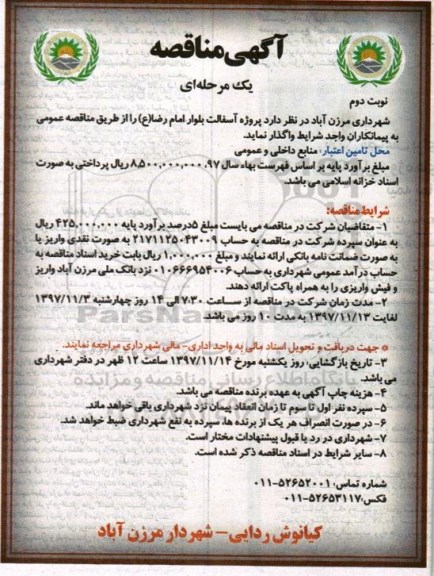 آگهی مناقصه
یک مرحله‌ای
نوبت دوم
شهرداری مرزن آباد در نظر دارد پروژه آسفالت بلوار امام رضا(ع) را از طریق مناقصه عمومی
به پیمانکاران واجد شرایط واگذار نماید.
محل تامین اعتبار: منابع داخلی و عمومی
مبلغ برآورد پایه بر اساس فهرست بهاء سال ۹۷، ۸,۵۰۰,۰۰۰,۰۰۰ ریال پرداختی به صورت
اسناد خزانه اسلامی می باشد.
شرایط مناقصه:
۱- متقاضیان شرکت در مناقصه می بایست مبلغ ۵درصد برآورد پایه ۴۲۵,۰۰۰,۰۰۰ ریال
به عنوان سپرده شرکت در مناقصه به حساب ۲۱۷۱۱۲۵۰۴۳۰۰۹ به صورت نقدی واریز یا
به صورت ضمانت نامه بانکی ارائه نمایند و مبلغ ۱,۰۰۰,۰۰۰ ریال بابت خرید اسناد مناقصه به
حساب درآمد عمومی شهرداری به حساب ۰۱۰۶۶۶۹۵۴۰۰۶ نزد بانک ملی مرزن آباد واریز
و فیش واریزی را به همراه پاکت ارائه دهند.
۲- مدت زمان شرکت در مناقصه از ساعت ۷:۳۰ الی ۱۴ روز چهارشنبه ۱۳۹۷/۱۱/۳
لغایت ۱۳۹۷/۱۱/۱۳ به مدت ۱۰ روز می باشد.
* جهت دریافت و تحویل اسناد مالی به واحد اداری- مالی شهرداری مراجعه نمایند.
۳- تاریخ بازگشایی: روز یکشنبه مورخ ۱۳۹۷/۱۱/۱۴ ساعت ۱۲ ظهر در دفتر شهرداری
می باشد.
۴- هزینه چاپ آگهی به عهده برنده مناقصه می باشد.
۵- سپرده نفر اول تا سوم تا زمان انعقاد پیمان نزد شهرداری باقی خواهد ماند.
۶- در صورت انصراف هر یک از برنده ها، سپرده به نفع شهرداری ضبط خواهد شد.
۷- شهرداری در رد یا قبول پیشنهادات مختار است.
۸- سایر شرایط در اسناد مناقصه ذکر شده است.
شماره تماس: ۵۲۶۵۲۰۰۱-۰۱۱
فکس: ۵۲۶۵۳۱۱۷-۰۱۱
کیانوش ردایی- شهردار مرزن آباد